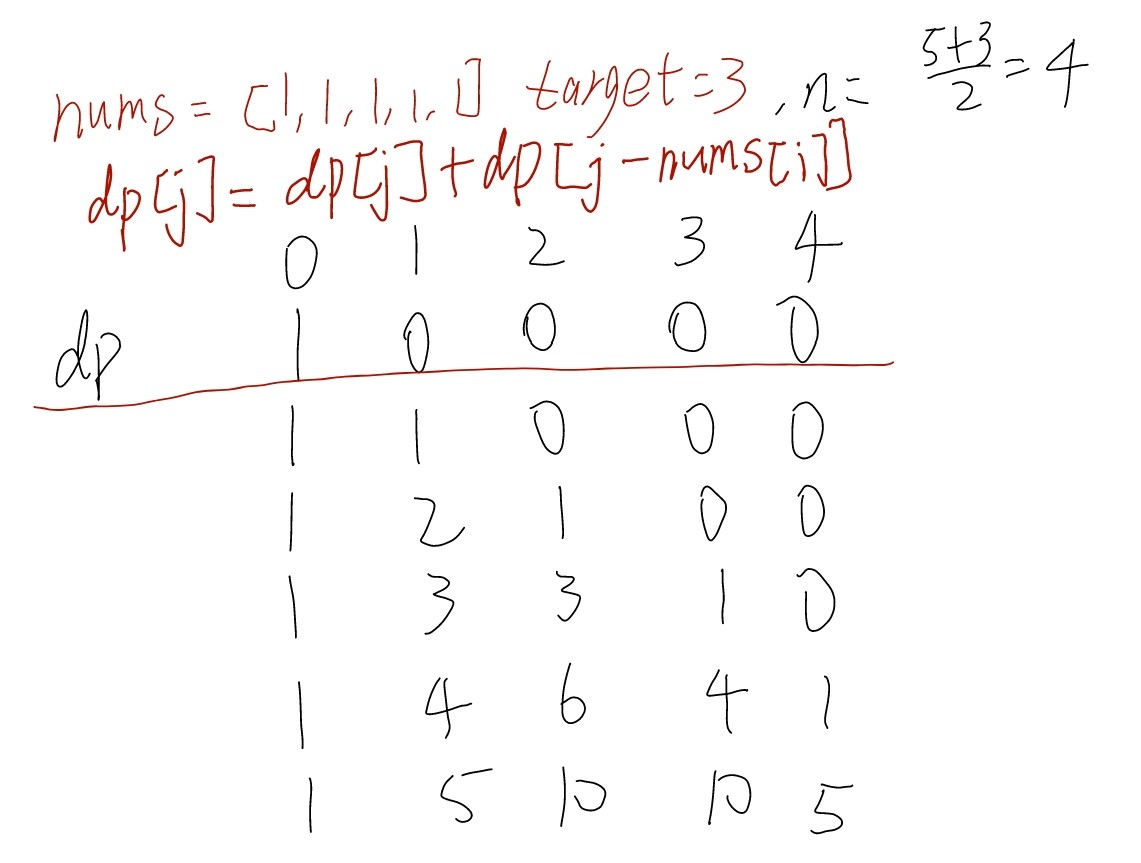 nums = [1, 1, 1, 1, 1] target = 3 , n = (5+3)/2 = 4
dp[j] = dp[j] + dp[j - nums[i]]
0 1 2 3 4
dp 1 0 0 0 0
1 1 0 0 0
1 2 1 0 0
1 3 3 1 0
1 4 6 4 1
1 5 10 10 5